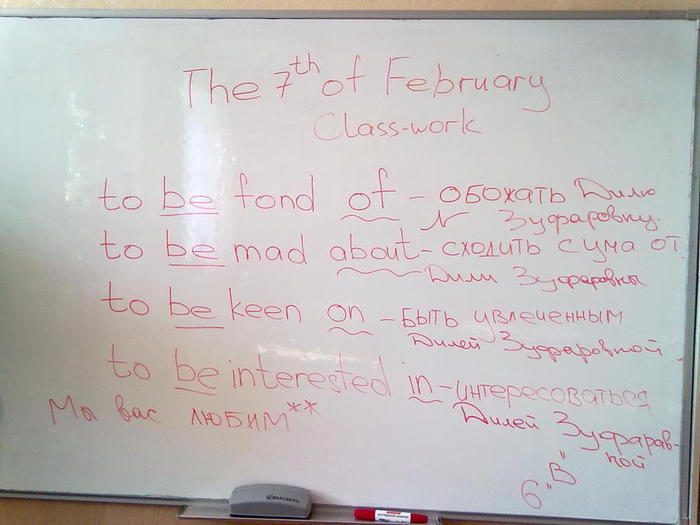 The 7th of February
Class-work
to be fond of - обожать Дилю
Зуфаровну.
to be mad about - сходить с ума от
Дили Зуфаровны
to be keen on - быть увлеченным
Дилей Зуфаровной.
to be interested in - интересоваться
Дилей Зуфарав-
ной
Мы вас любим**
6 "В"
BRAUBERG